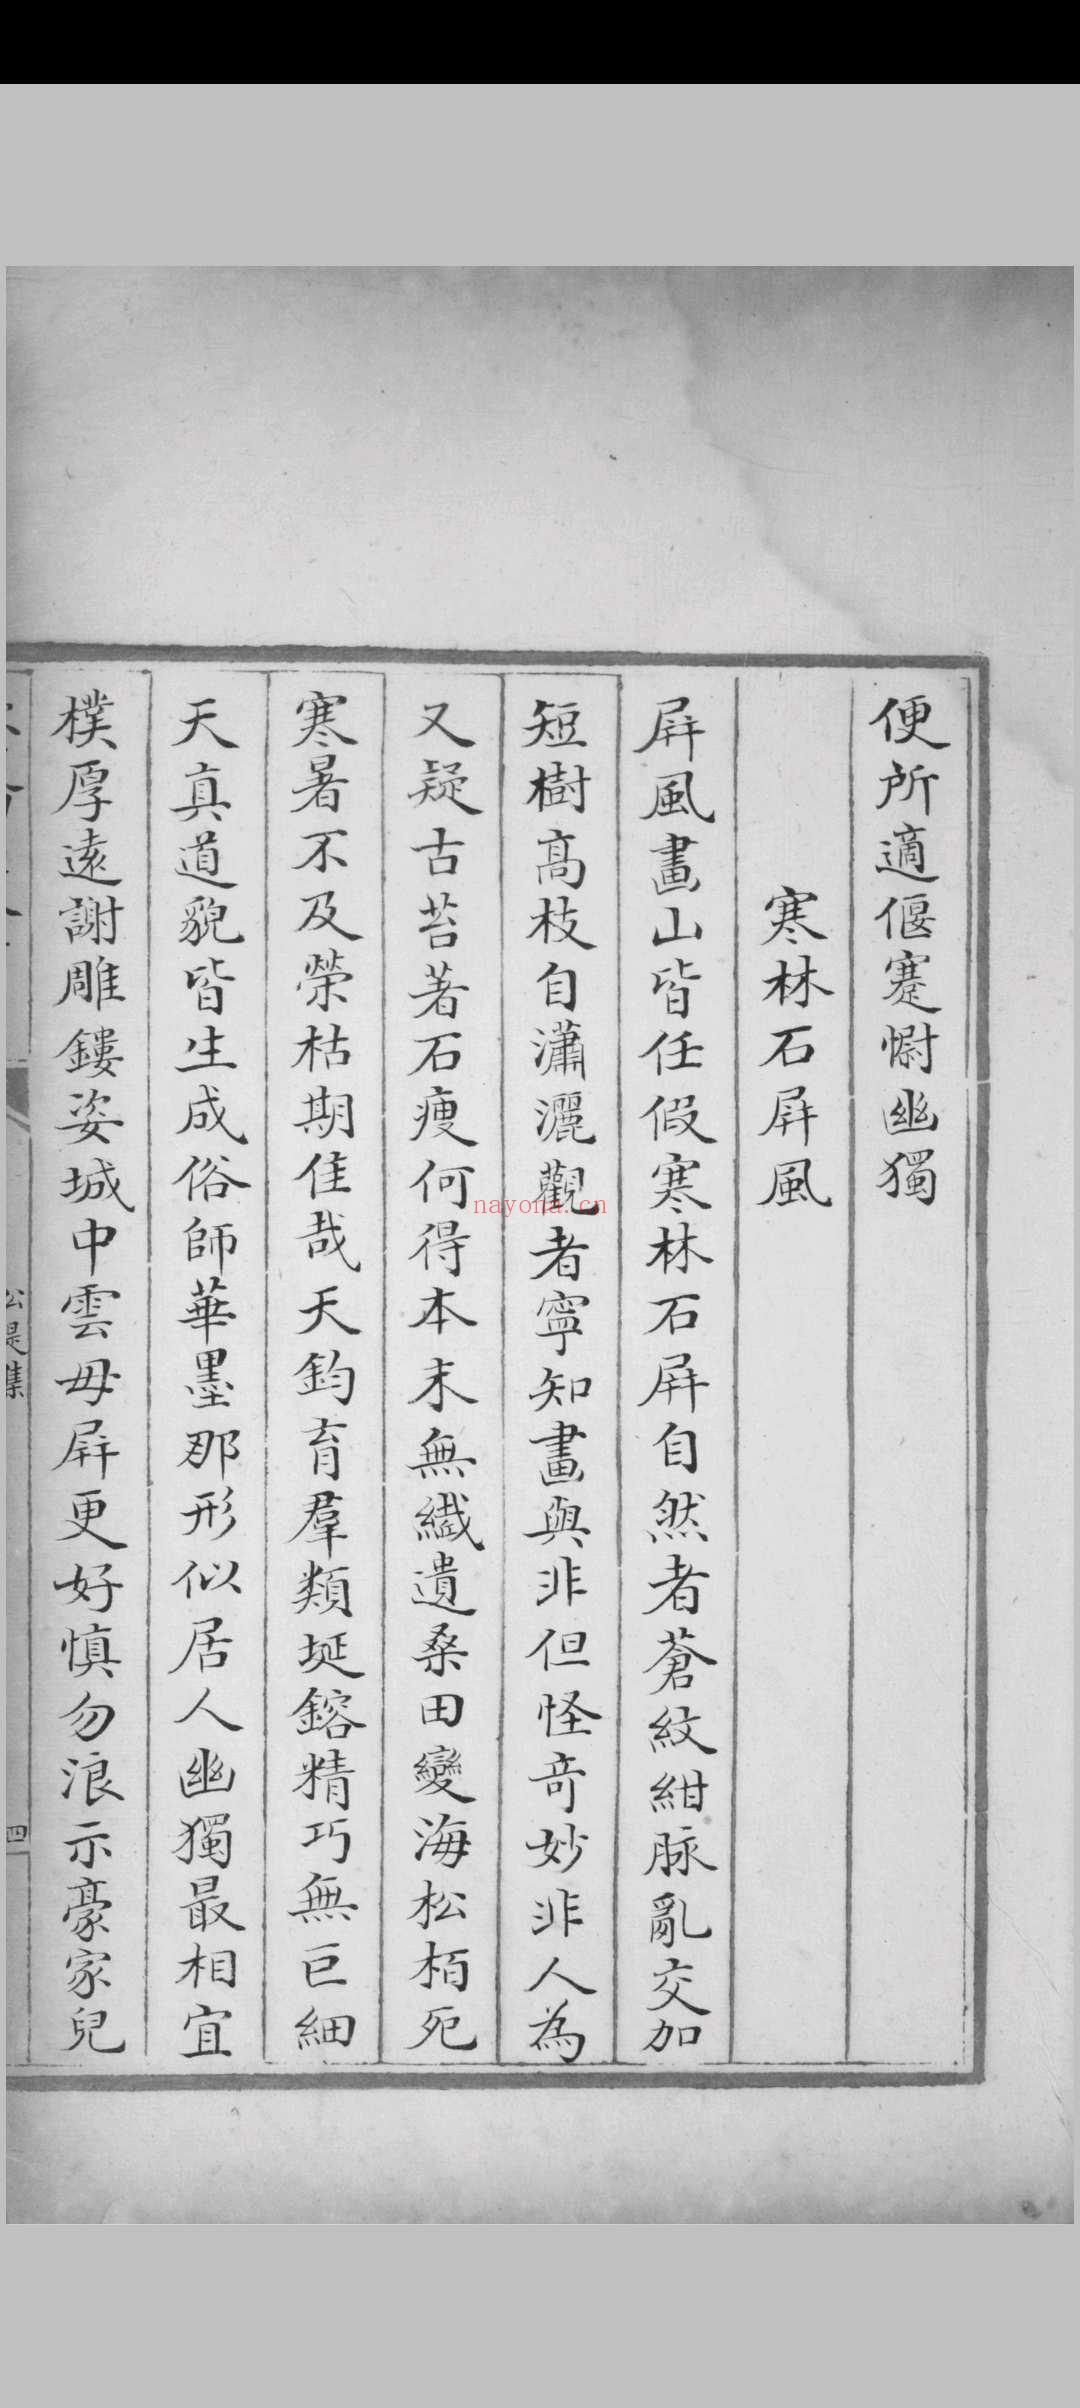 便所適偃蹇慰幽獨
寒林石屏風
屏風畫山皆任假寒林石屏自然者蒼紋紺脉亂交加
短樹高枝自瀟灑觀者寧知畫與非但怪竒妙非人為
又疑古苔著石痩何得本末無纎遺桑田變海松栢死
寒暑不及榮枯期佳哉天鈞育羣類埏鎔精巧無巨細
天真道貌皆生成俗師華墨那形似居人幽獨最相宜
樸厚遠謝雕鏤姿城中雲母屏更好慎勿浪示豪家兒
公是集
四
nayona.cn